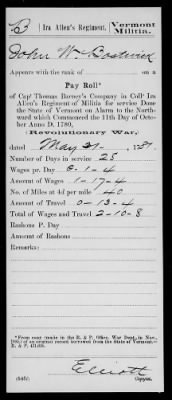 B | Ira Allen's Regiment, | Vermont Militia.
John W. Bostwick
Appears with the rank of on a
Pay Roll*
of Capt Thomas Barney's Company in Coll° Ira
Allen's Regiment of Militia for service Done
the State of Vermont on Alarm to the North-
ward which Commenced the 11th Day of Octo-
ber Anno D. 1780,
(Revolutionary War,)
dated May 31, 1781.
Number of Days in service 28
Wages pr. Day 0-1-4
Amount of Wages 1-17-4
No. of Miles at 4d per mile 40
Amount of Travel 0-13-4
Total of Wages and Travel 2-10-8
Rashons P. Day
Amount of Rashons
Remarks:
*From copy (made in the R. & P. Office, War Dept., in Nov.,
of original record borrowed from the State of Vermont.—
R. & P. 431,698.
Elliott
(545i) Copyist.